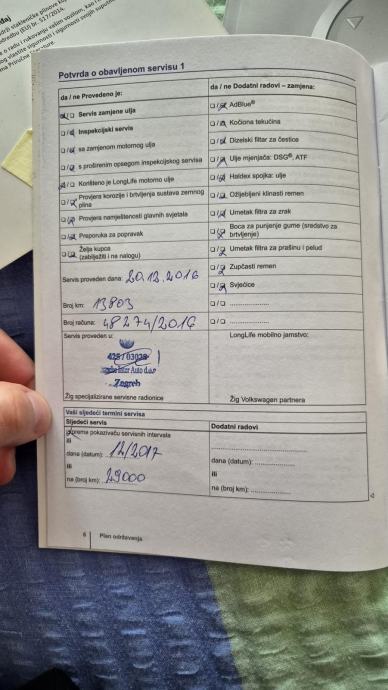 Potvrda o obavljenom servisu 1
da / ne Provedeno je:
Servis zamjene ulja
Inspekcijski servis
sa zamjenom motornog ulja
s proširenim opsegom inspekcijskog servisa
Korišteno je LongLife motorno ulje
Provjera korozije i brtvljenja sustava zemnog
plina
Provjera namještenosti glavnih svjetala
Preporuka za popravak
Želja kupca
(zabilježiti i na nalogu)
Servis proveden dana: 20.12.2016
Broj km: 13803
Broj računa: 48274/2016
Servis proveden u:
Zagreb
Žig specijalizirane servisne radionice
da / ne Dodatni radovi – zamjena:
AdBlue®
Kočiona tekućina
Dizelski filtar za čestice
Ulje mjenjača: DSG®, ATF
Haldex spojka: ulje
Ožljebljeni klinasti remen
Umetak filtra za zrak
Boca za punjenje gume (sredstvo za
brtvljenje)
Umetak filtra za prašinu i pelud
Zupčasti remen
Svjećice
LongLife mobilno jamstvo:
Žig Volkswagen partnera
Vaši sljedeći termini servisa
Sljedeći servis
prema pokazivaču servisnih intervala
ili
dana (datum): 12/2017
ili
na (broj km): 29000
Dodatni radovi
dana (datum):
ili
na (broj km):
6 Plan održavanja